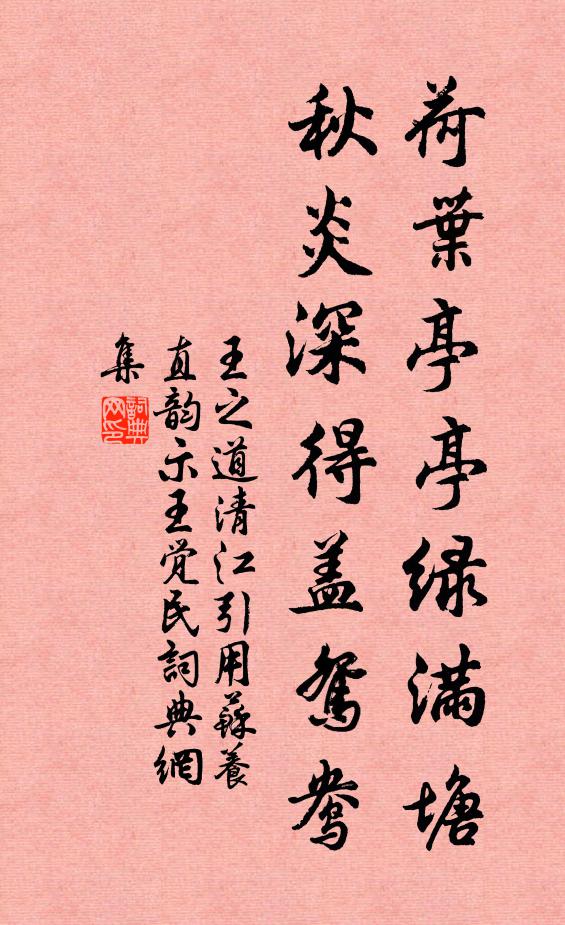 荷葉亭亭绿滿塘
秋炎深得盖鴛鴦
王之道清江引用蘇養
直韵示王觉民詞典網
集
詞典
网印